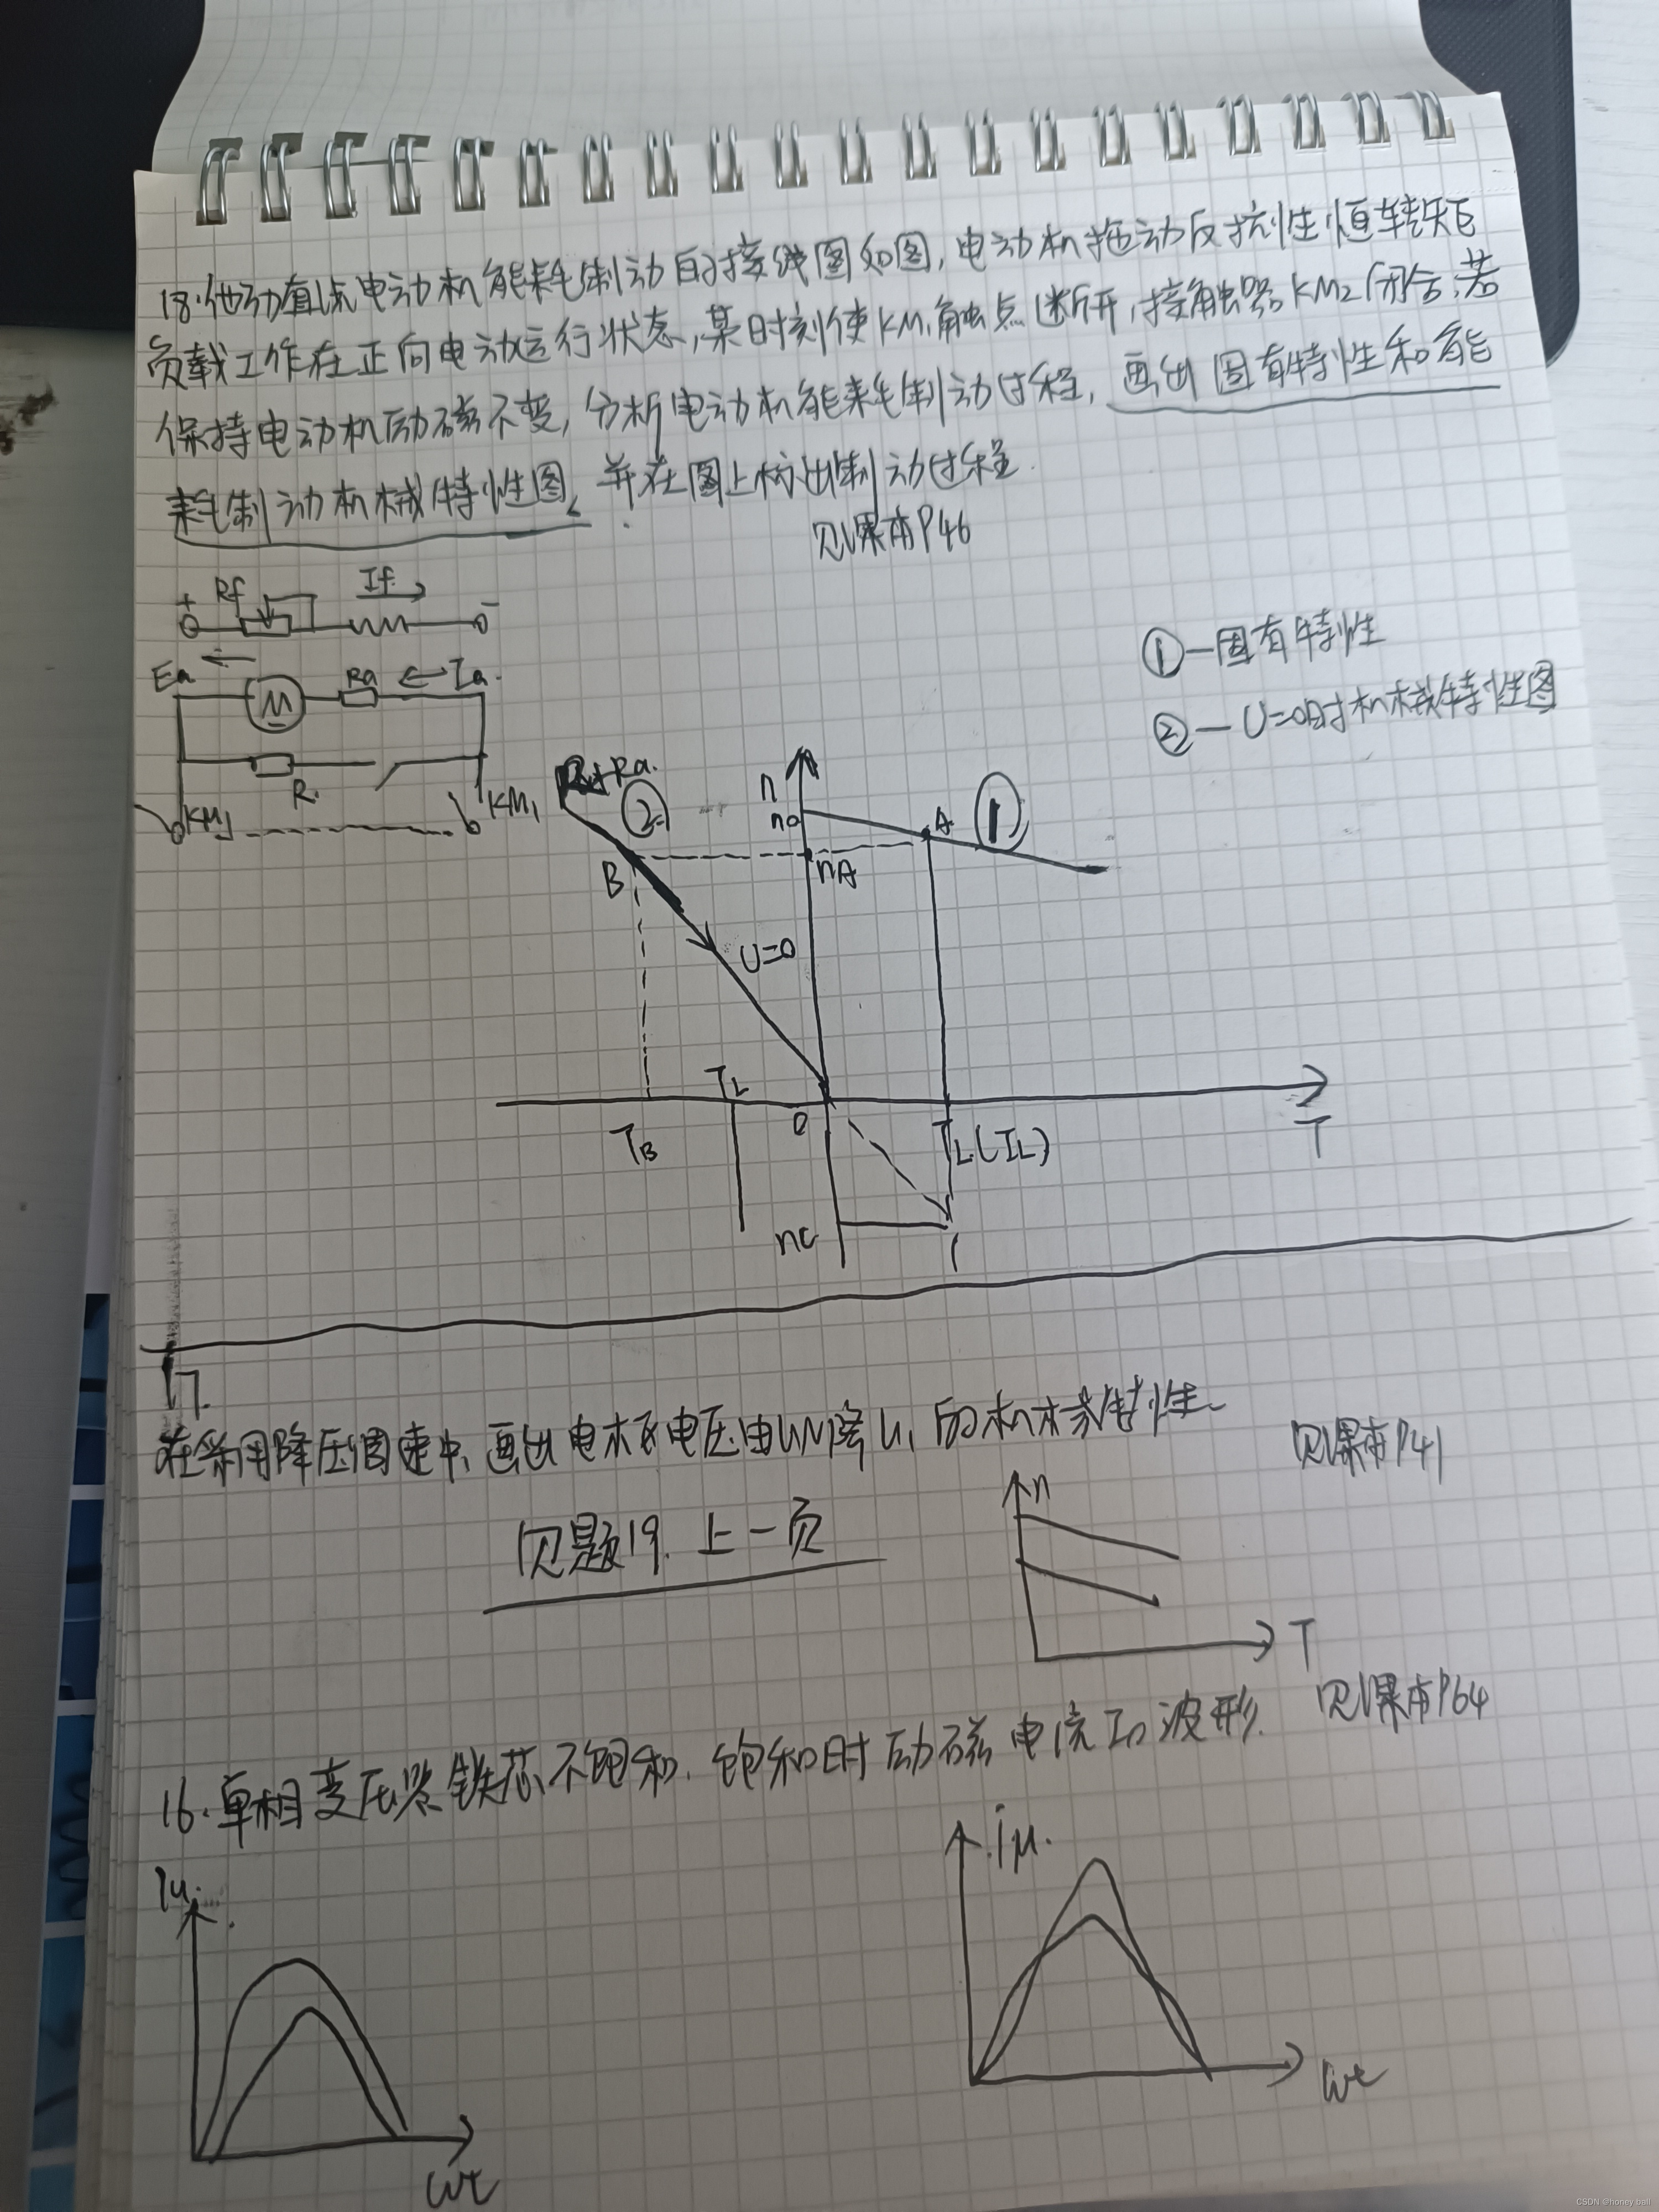 18.他励直流电动机能耗制动的接线图如图,电动机拖动反抗性恒转矩
负载工作在正向电动运行状态,某时刻使KM1触点断开,接触器KM2闭合,若
保持电动机励磁不变,分析电动机能耗制动过程,画出固有特性和能
耗制动机械特性图,并在图上标出制动过程.
见课本P46
+ Rf If -
Ea Ra Ia
M
R
KM1 KM1
①—固有特性
②—U=0时机械特性图
+Ra
② n
n0 A ①
B nA
U=0
TL
TB 0 TL(IL) T
nC
17.
在采用降压调速中,画出电枢电压由UN降U1的机械特性.
见课本P41
见题19.上一页
n
T
见课本P64
16.单相变压器铁芯不饱和,饱和时励磁电流I0波形.
iμ.
Iμ.
wt
wt
CSDN @honey ball